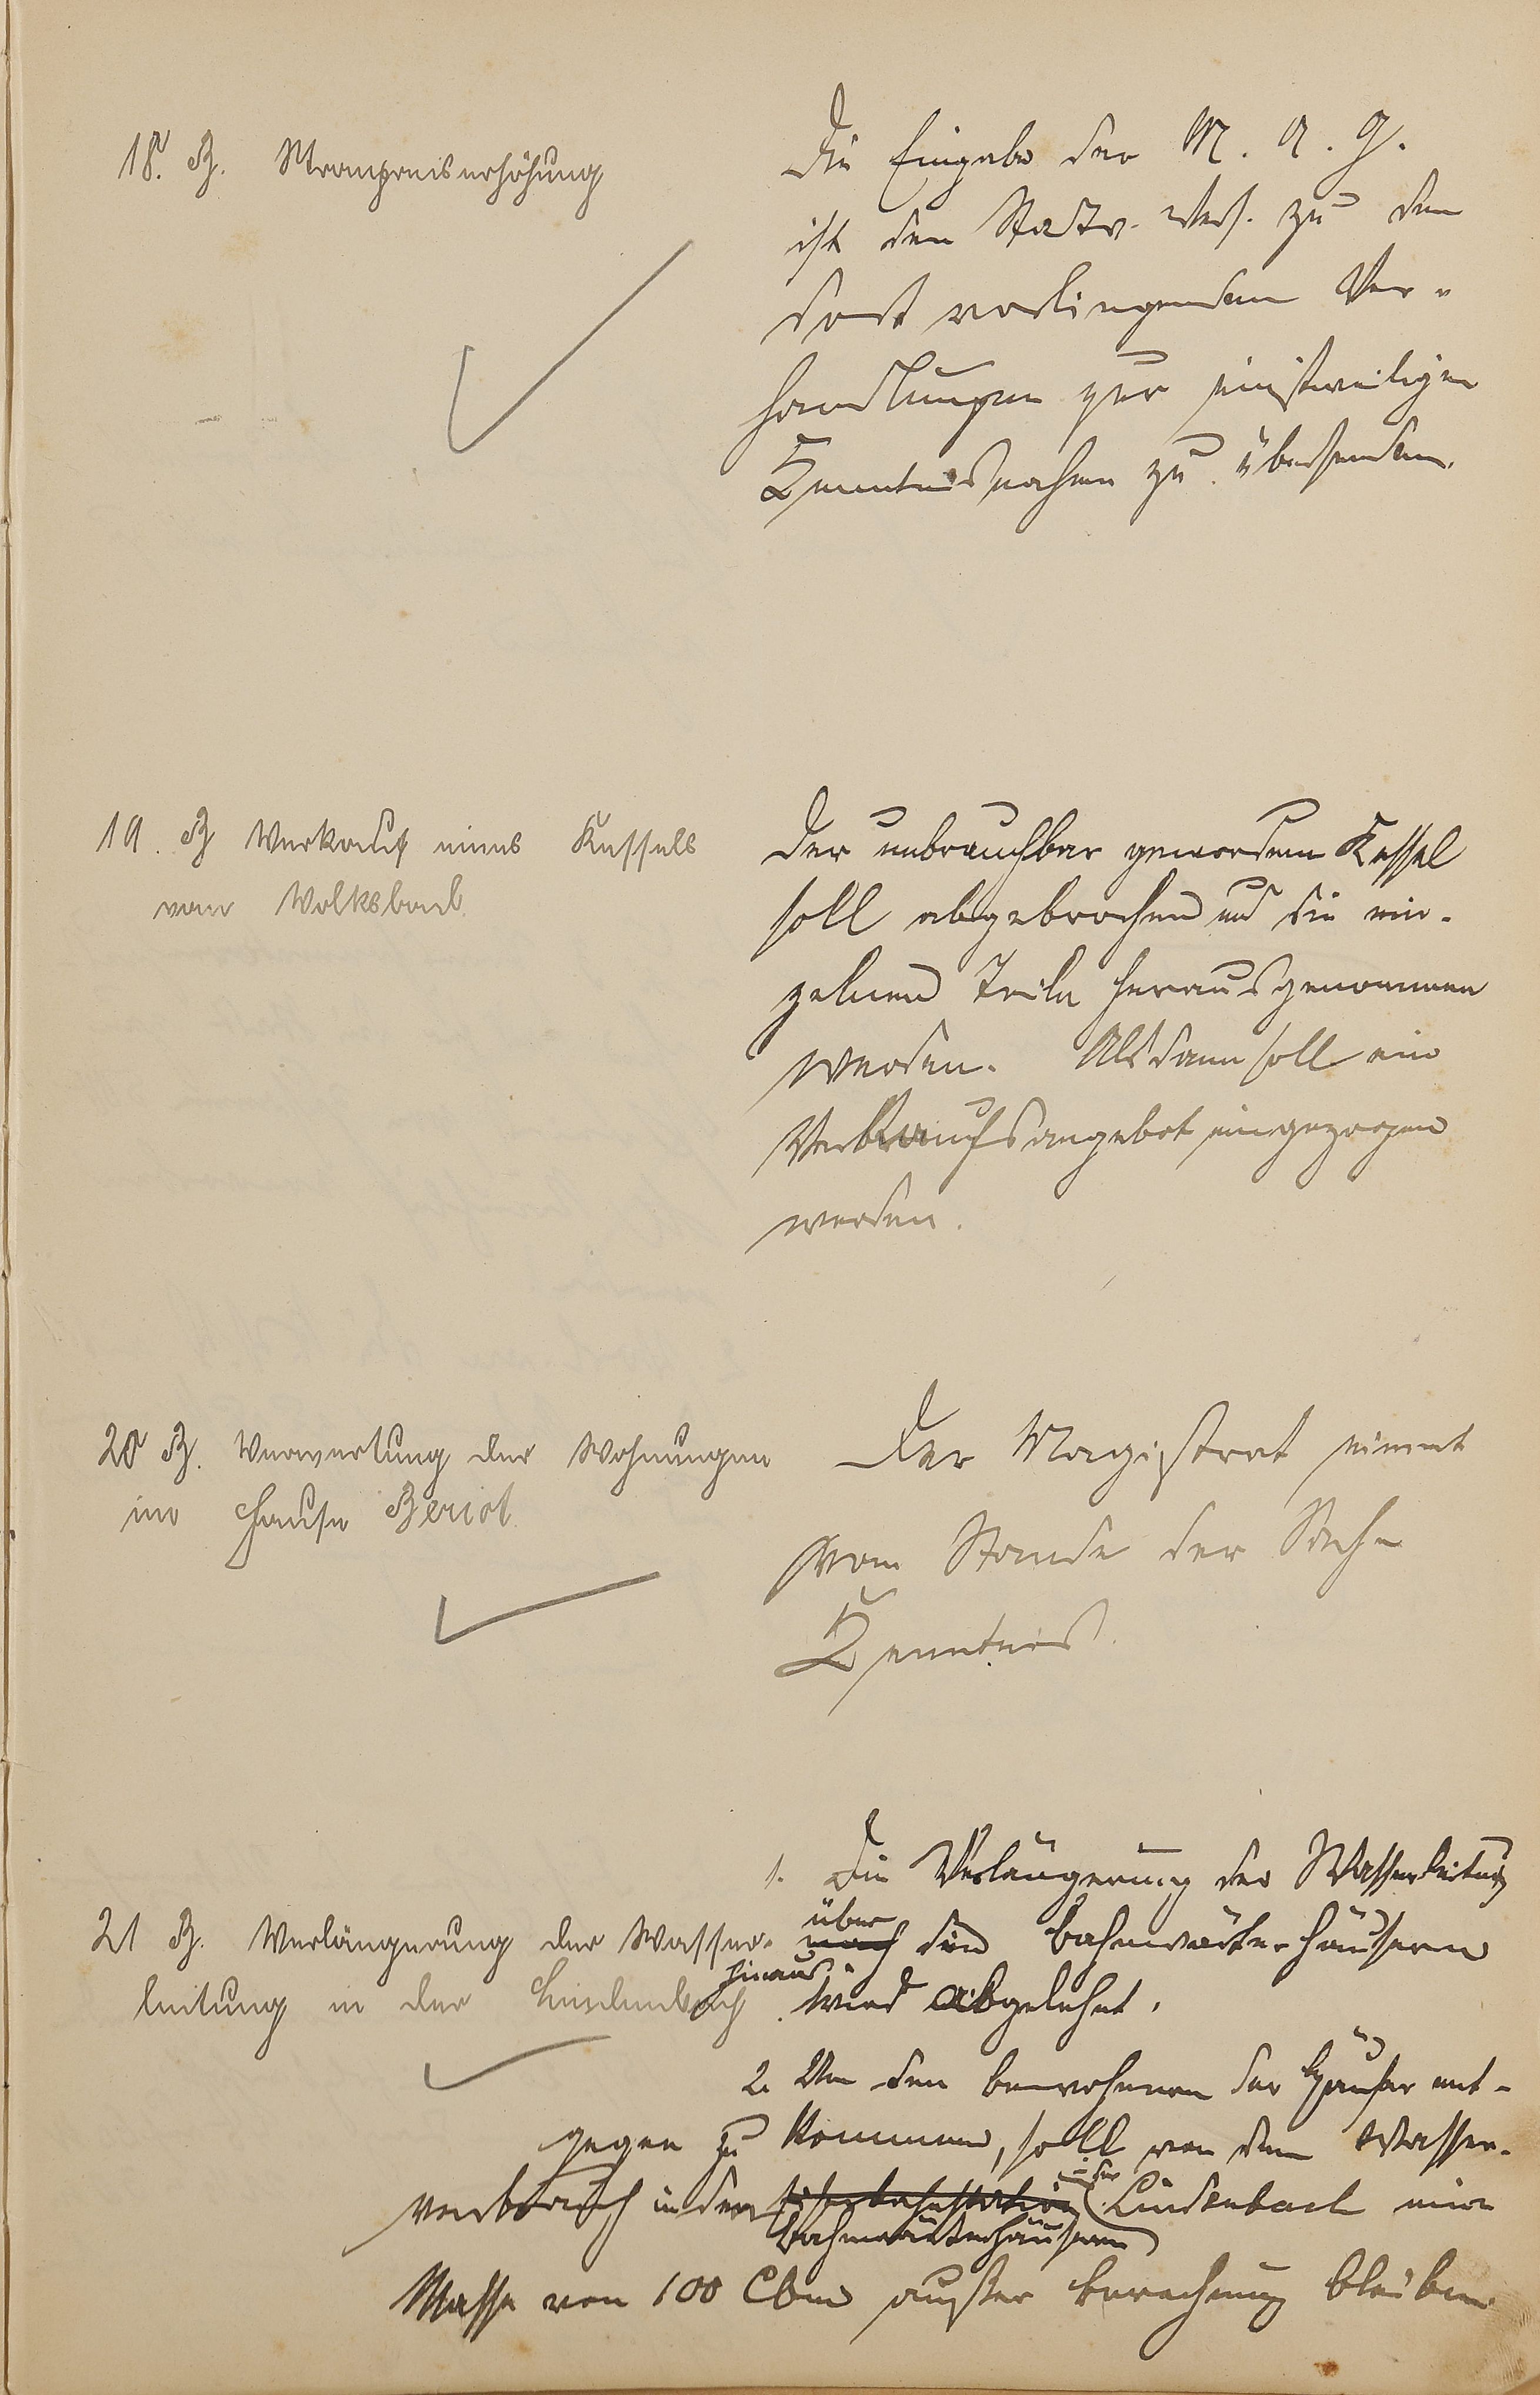 18. B. Strompreiserhöhung
Die Eingabe der M. A. G.
ist den Stadtv. Vers. zu den
dort vorliegenden Ver-
handlungen zur einstweiligen
Kenntnisnahme zu übersenden.
19. B Verkauf eines Kessels
vom Volksbad.
Der unbrauchbar gewordene Kessel
soll abgebrochen und die ein-
zelnen Teile herausgenommen
werden. Alsdann soll ein
Verkaufsangebot eingezogen
werden.
20 B. Verwertung der Wohnungen
im Hause Beriot.
Der Magistrat nimmt
vom Stande der Sache
Kenntnis.
21 B. Verlängerung der Wasser-
leitung in der Lindenbach
1. Die Verlängerung der Wasserleitung
über
nach den Bahnwärterhäusern
hinaus
wird abgelehnt.
2. Um den Bewohnern der Häuser ent-
gegen zu kommen, soll von dem Wasser-
verbrauch in den Eisenbahnstation in der Lindenbach eine
Bahnwärterhäusern
Masse von 100 Cbm außer Berechnung bleiben